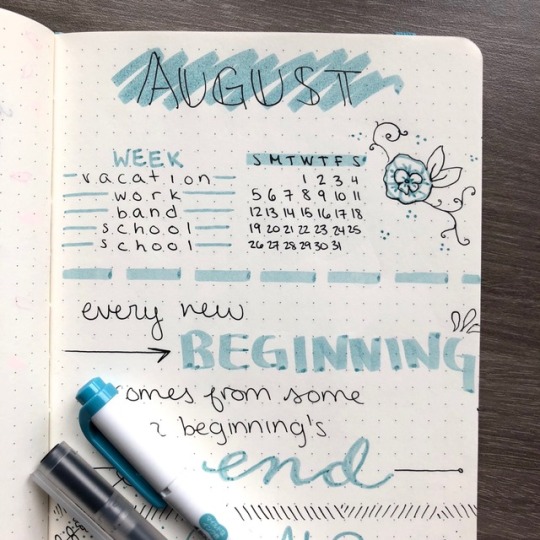 AUGUST
WEEK
vacation
work
band
school
school
S M T W T F S
1 2 3 4
5 6 7 8 9 10 11
12 13 14 15 16 17 18
19 20 21 22 23 24 25
26 27 28 29 30 31
every new
BEGINNING
omes from some
beginning's
end